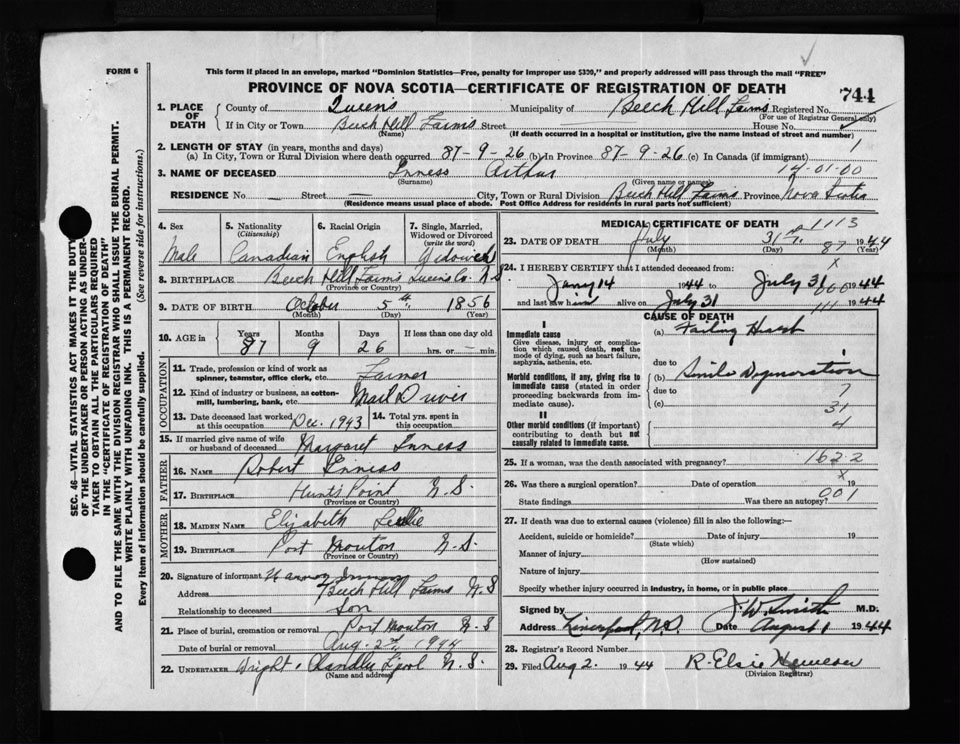 FORM 6
This form if placed in an envelope, marked "Dominion Statistics—Free, penalty for improper use $300," and properly addressed will pass through the mail "FREE"
PROVINCE OF NOVA SCOTIA—CERTIFICATE OF REGISTRATION OF DEATH
744
1. PLACE OF DEATH
County of Queens Municipality of Beech Hill Farms Registered No.
(For use of Registrar General only)
If in City or Town Beech Hill Farms Street House No.
(Name) (If death occurred in a hospital or institution, give the name instead of street and number)
2. LENGTH OF STAY (in years, months and days) 1
(a) In City, Town or Rural Division where death occurred 87-9-26 (b) In Province 87-9-26 (c) In Canada (if immigrant)
3. NAME OF DECEASED Inness Arthur 14-01-00
(Surname) (Given name or names)
RESIDENCE No. — Street — City, Town or Rural Division Beech Hill Farms Province Nova Scotia
(Residence means usual place of abode. Post Office Address for residents in rural parts not sufficient)
SEC. 46—VITAL STATISTICS ACT MAKES IT THE DUTY
OF THE UNDERTAKER OR PERSON ACTING AS UNDER-
TAKER TO OBTAIN ALL THE PARTICULARS REQUIRED
IN THE "CERTIFICATE OF REGISTRATION OF DEATH"
AND TO FILE THE SAME WITH THE DIVISION REGISTRAR WHO SHALL ISSUE THE BURIAL PERMIT.
WRITE PLAINLY WITH UNFADING INK. THIS IS A PERMANENT RECORD.
Every item of information should be carefully supplied. (See reverse side for instructions.)
4. Sex
Male
5. Nationality
(Citizenship)
Canadian
6. Racial Origin
English
7. Single, Married, Widowed or Divorced
(write the word)
Widowed
8. BIRTHPLACE Beech Hill Farms Queens Co. N.S
(Province or Country)
9. DATE OF BIRTH October 5th 1856
(Month) (Day) (Year)
10. AGE in
Years Months Days If less than one day old
87 9 26 hrs. or — min.
OCCUPATION
11. Trade, profession or kind of work as spinner, teamster, office clerk, etc. Farmer
12. Kind of industry or business, as cotton-mill, lumbering, bank, etc. Mail Driver
13. Date deceased last worked at this occupation Dec. 1943
14. Total yrs. spent in this occupation
15. If married give name of wife or husband of deceased Margaret Inness
FATHER
16. NAME Robert Inness
17. BIRTHPLACE Hunts Point N.S.
(Province or Country)
MOTHER
18. MAIDEN NAME Elizabeth Leslie
19. BIRTHPLACE Port Mouton N.S.
(Province or Country)
20. Signature of informant Inness
Address Beech Hill Farms N.S
Relationship to deceased Son
21. Place of burial, cremation or removal Port Mouton N.S
Date of burial or removal Aug. 2nd 1944
22. UNDERTAKER Wright & Chandler Lpool N.S.
(Name and address)
MEDICAL CERTIFICATE OF DEATH
1113
23. DATE OF DEATH July 31st 1944
(Month) (Day)
87
x
24. I HEREBY CERTIFY that I attended deceased from:
Jany 14 1944 to July 31 1944
000
and last saw him alive on July 31 1944
111
CAUSE OF DEATH
I
Immediate cause
Give disease, injury or complication which caused death, not the mode of dying, such as heart failure, asphyxia, asthenia, etc.
(a) Failing Heart
due to
Morbid conditions, if any, giving rise to immediate cause (stated in order proceeding backwards from immediate cause).
(b) Senile Degeneration
due to 7
(c) 31
II
Other morbid conditions (if important) contributing to death but not causally related to immediate cause.
4
25. If a woman, was the death associated with pregnancy? 162.2
x
26. Was there a surgical operation? Date of operation 19
001
State findings Was there an autopsy?
27. If death was due to external causes (violence) fill in also the following:—
Accident, suicide or homicide? Date of injury 19
(State which)
Manner of injury
(How sustained)
Nature of injury
Specify whether injury occurred in industry, in home, or in public place
Signed by J. W. Smith M.D.
Address Liverpool, N.S. Date August 1 1944
28. Registrar's Record Number
29. Filed Aug 2. 1944 R. Elsie
(Division Registrar)